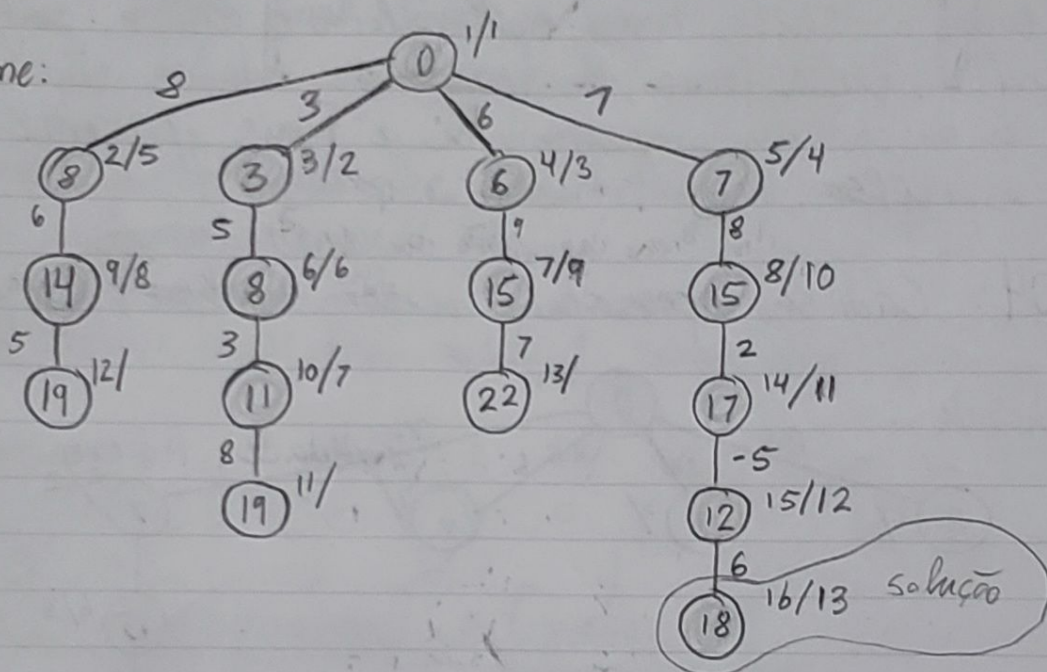 1/1
ne:
0
8 3 6 7
8 2/5 3 3/2 6 4/3 7 5/4
6 5 9 8
14 9/8 8 6/6 15 7/9 15 8/10
5 3 7 2
19 12/ 11 10/7 22 13/ 17 14/11
8 -5
19 11/ 12 15/12
6
18 16/13 solução